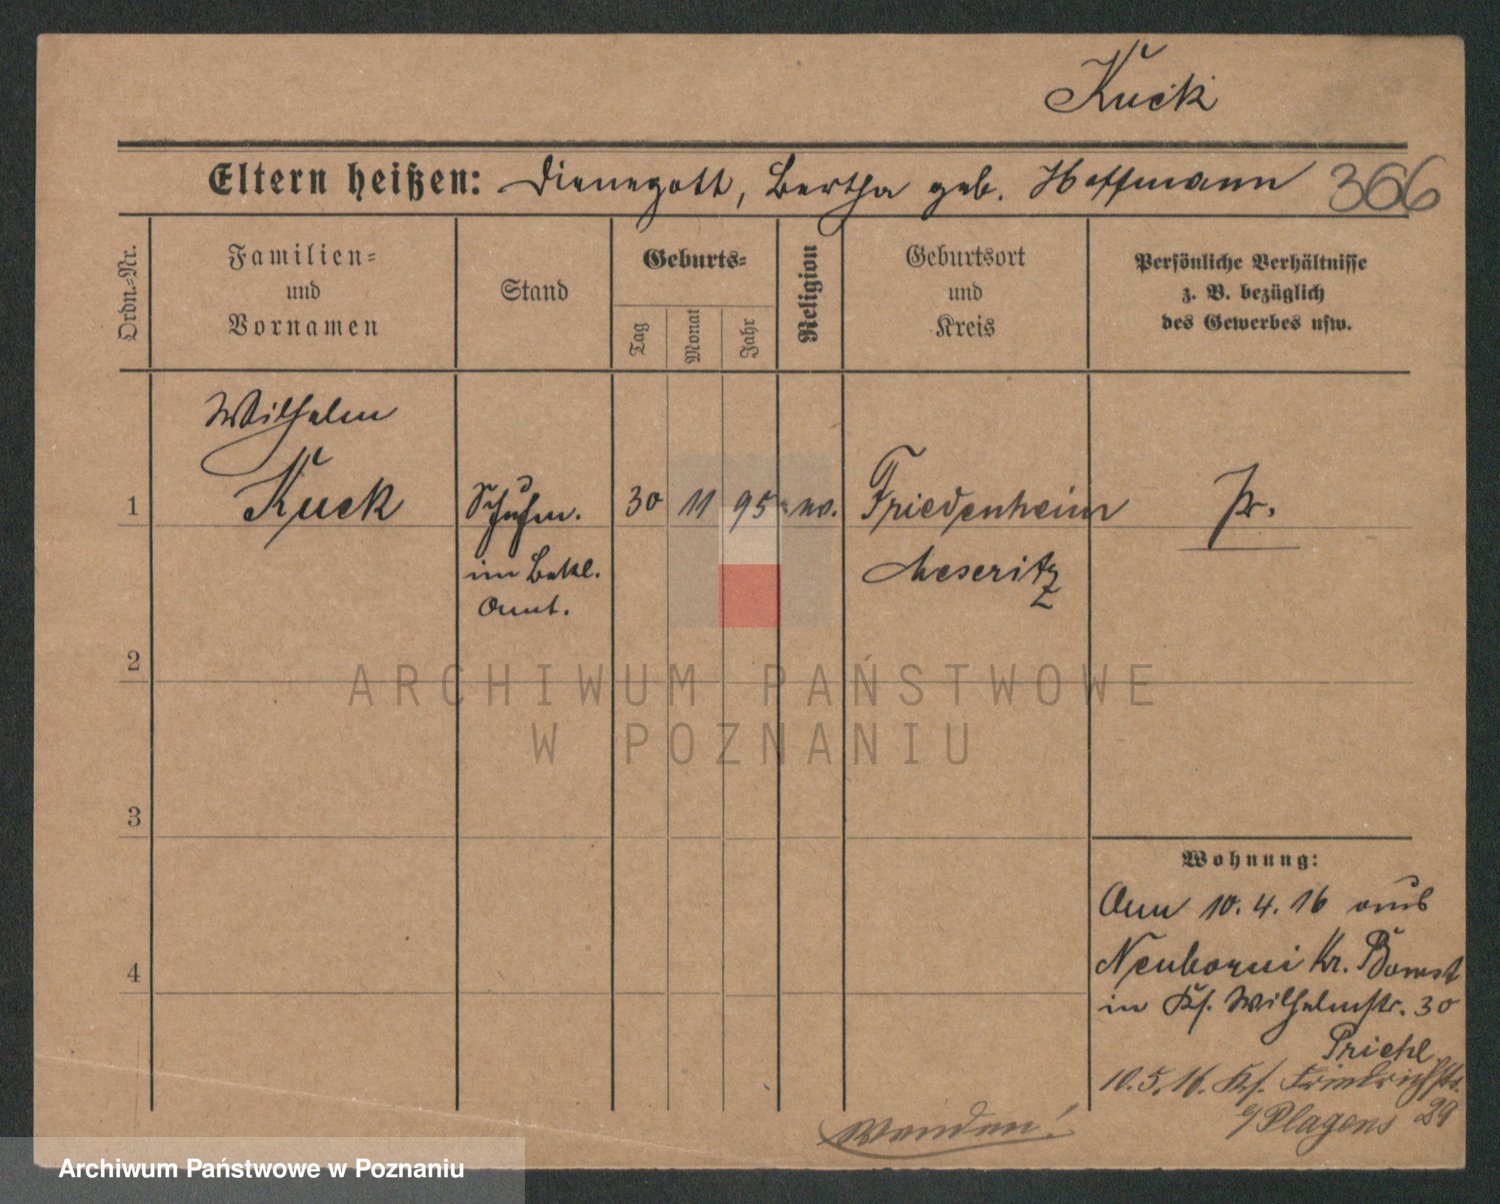 Kuck
Eltern heißen: Dienegott, Bertha geb. Hoffmann 366
Ordn.-Nr.
Familien-
und
Vornamen
Stand
Geburts-
Tag
Monat
Jahr
Religion
Geburtsort
und
Kreis
Persönliche Verhältnisse
z. B. bezüglich
des Gewerbes usw.
Wilhelm
1 Kuck Schuhm. 30 11 95 ev. Friedenheim Pr.
im Bekl. Meseritz
Amt.
2
3
4
Wohnung:
Am 10. 4. 16 aus
Neuborui Kr. Bomst
in Ks. Wilhelmstr. 30
Priehl
10. 5. 16. Ks. Friedrichstr.
b/ Plagens 29
Wenden!
ARCHIWUM PAŃSTWOWE
W POZNANIU
Archiwum Państwowe w Poznaniu